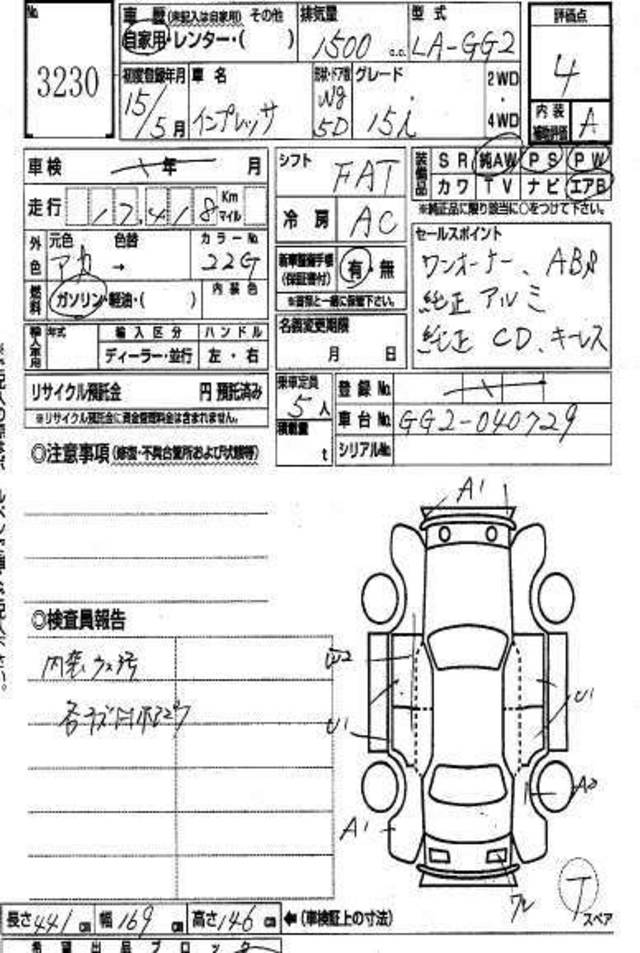 No. 3230
車歴 (未記入は自家用) その他
自家用・レンター・( )
排気量 1500 c.c.
型式 LA-GG2
評価点 4
初度登録年月 15/5月
車名 インプレッサ
形状・ドア数 Wg 5D
グレード 15i
2WD・4WD
内装 補助評価 A
車検 年 月
シフト FAT
装備品 SR 純AW PS PW
カワ TV ナビ エアB
※純正品に限り該当に○をつけて下さい。
走行 17,418 Km マイル
冷房 AC
外色 元色 色替 カラーNo.
アカ → 22G
新車整備手帳(保証書付) 有・無
※書類と一緒に保管下さい。
セールスポイント
ワンオーナー、ABS
純正アルミ
純正CD、キーレス
燃料 ガソリン・軽油・( ) 内装色
名義変更期限
月 日
輸入車用 年式 輸入区分 ハンドル
ディーラー・並行 左・右
リサイクル預託金 円 預託済み
※リサイクル預託金に資金管理料金は含まれません。
乗車定員 5人
登録No.
積載量 t
車台No. GG2-040729
シリアルNo.
◎注意事項(修復・不具合箇所および状態等)
A1
◎検査員報告
内装ウスヨゴレ
W2
U1
U1
A2
A1
ワレ
T
スペア
長さ441cm 幅169cm 高さ146cm ←(車検証上の寸法)
希望出品ブロック